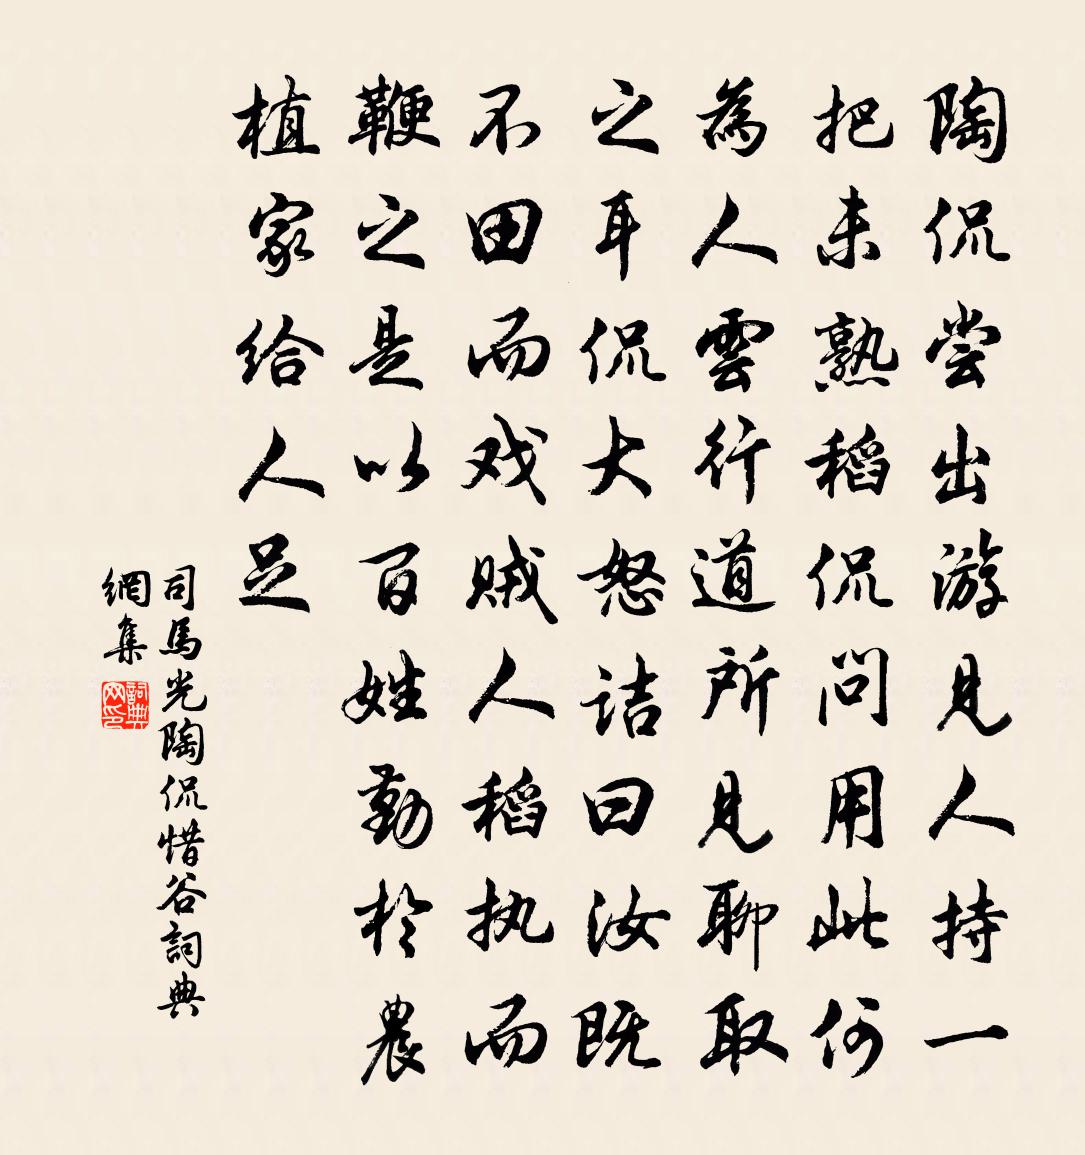 陶侃尝出游见人持一
把未熟稻侃问用此何
為人雲行道所見聊取
之耳侃大怒诘曰汝既
不田而戏贼人稻执而
鞭之是以百姓勤於農
植家给人足
司馬光陶侃惜谷詞典
網集
詞典
网印